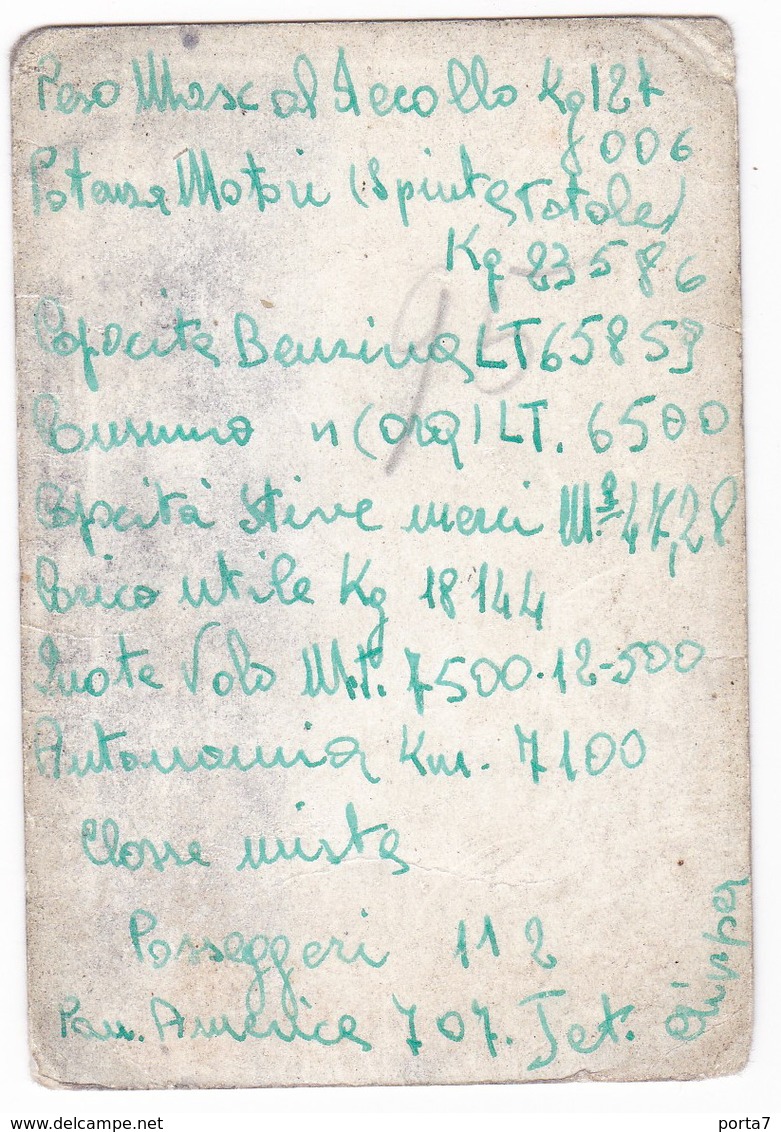 Peso Mass al Decollo Kg 127
006
Potenza Motori (Spinta Totale)
Kg 23586
Capacita Benzina LT 65853
Cunsumo n (ora) LT. 6500
Capacità Stive merci M.³ 47,28
Carico utile Kg 18144
Quote Volo Mt. 7500-12-500
Autonomia Km. 7100
Classe mista
Passeggeri 112
Pan. America 707. Jet.
95
www.delcampe.net
porta7